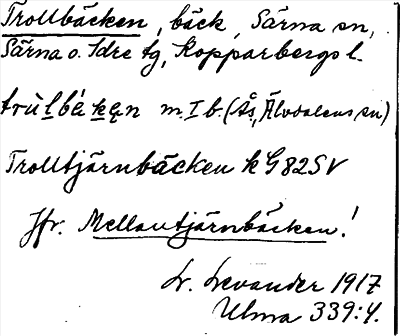 Trollbäcken, bäck, Särna sn,
Särna o. Idre tg, Kopparbergs l.
m. I b. (Ås, Älvdalens sn)
Trolltjärnbäcken k G82SV
Jfr. Mellantjärnbäcken!
L. Levander 1917
Ulma 339:4.